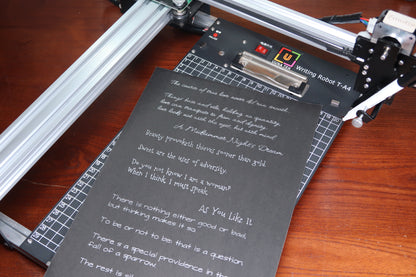 Writing Robot T-A4
U
The course of true love never did run smooth.
Things base and vile, holding no quantity,
love can transpose to form and dignity.
love looks not with the eyes, but with mind.
A Midsummer Night's Dream
Beauty provoketh thieves sooner than gold.
Sweet are the uses of adversity.
Do you not know I am a woman?
When I think, I must speak.
As You Like It
There is nothing either good or bad,
but thinking makes it so.
To be or not to be: that is a question.
There's a special providence in the
fall of a sparrow.
The rest is